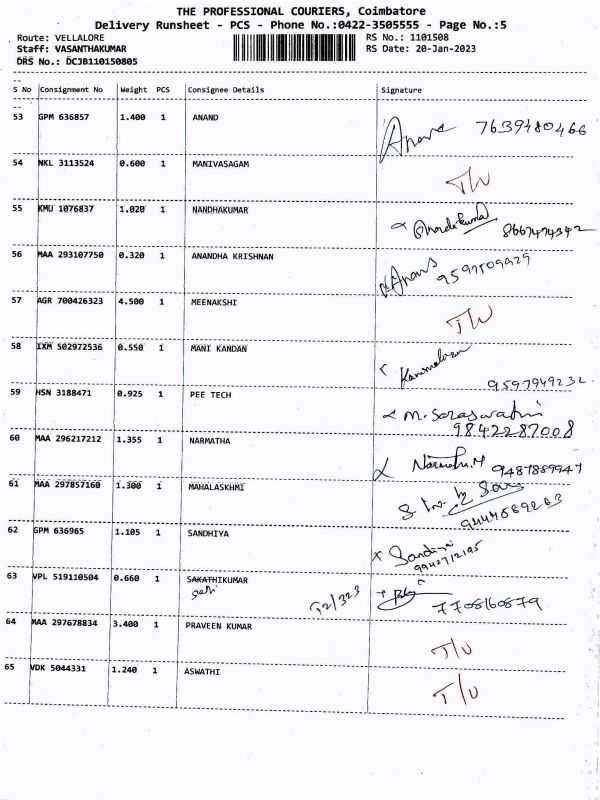 THE PROFESSIONAL COURIERS, Coimbatore
Delivery Runsheet - PCS - Phone No.:0422-3505555 - Page No.:5
Route: VELLALORE RS No.: 1101508
Staff: VASANTHAKUMAR RS Date: 20-Jan-2023
DRS No.: DCJB110150805
S No Consignment No Weight PCS Consignee Details Signature
53 GPM 636857 1.400 1 ANAND Anand 7639480466
54 NKL 3113524 0.600 1 MANIVASAGAM T/U
55 KMU 1076837 1.020 1 NANDHAKUMAR 8667474342
56 MAA 293107750 0.320 1 ANANDHA KRISHNAN
57 AGR 700426323 4.500 1 MEENAKSHI T/U
58 IXM 502972536 0.550 1 MANI KANDAN 9597949232
59 HSN 3188471 0.925 1 PEE TECH M. Saraswathi
9842287008
60 MAA 296217212 1.355 1 NARMATHA Narmatha.M 9487889947
61 MAA 297857160 1.300 1 MAHALASKHMI
62 GPM 636965 1.105 1 SANDHIYA Sandiya
63 VPL 519110504 0.660 1 SAKATHIKUMAR 7708160879
12/323
64 MAA 297678834 3.400 1 PRAVEEN KUMAR T/U
65 VDK 5044331 1.240 1 ASWATHI T/U